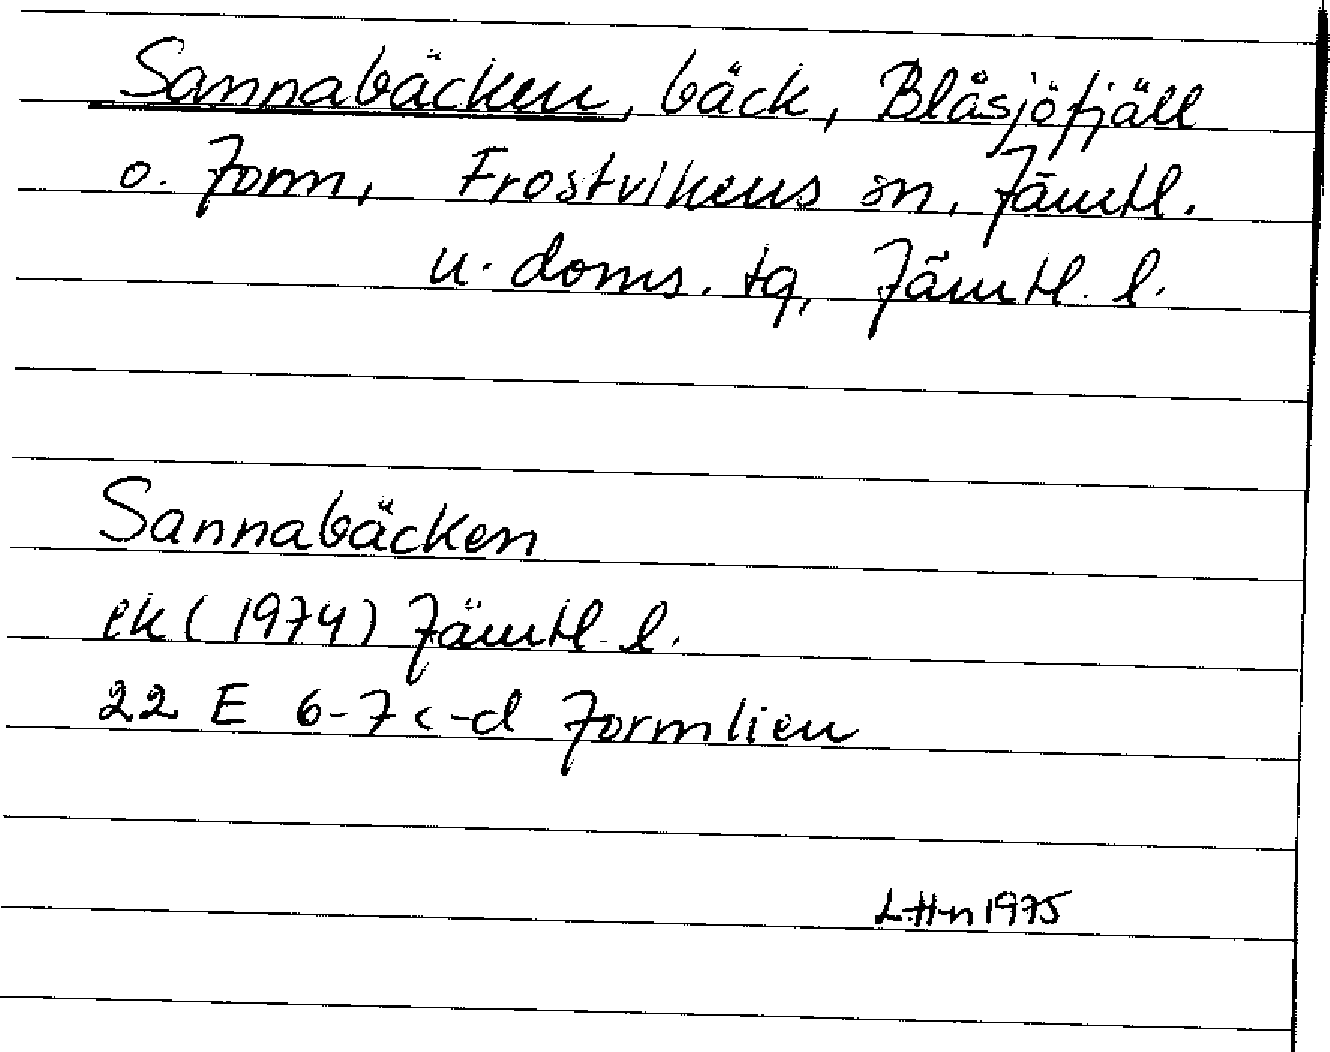 Sannabäcken, bäck, Blåsjöfjäll
o. Jorm, Frostvikens sn, Jämtl.
n. doms. tg, Jämtl. l.
Sannabäcken
ek (1974) Jämtl. l.
22 E 6-7 c-d Jormlien
LHn 1975